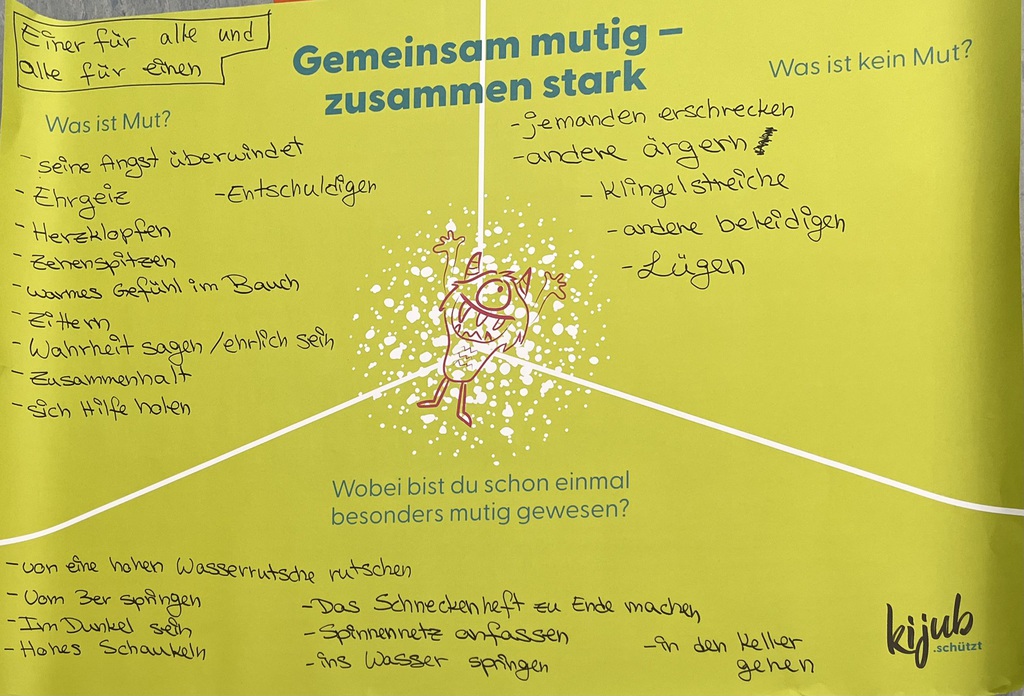 Einer für alle und
alle für einen
Gemeinsam mutig –
zusammen stark
Was ist Mut?
- seine Angst überwindet
- Ehrgeiz
- Entschuldigen
- Herzklopfen
- Zehenspitzen
- warmes Gefühl im Bauch
- Zittern
- Wahrheit sagen / ehrlich sein
- Zusammenhalt
- sich Hilfe holen
Was ist kein Mut?
- jemanden erschrecken
- andere ärgern
- Klingelstreiche
- andere beleidigen
- Lügen
Wobei bist du schon einmal
besonders mutig gewesen?
- von eine hohen Wasserrutsche rutschen
- Vom 3er springen
- Im Dunkel sein
- Hohes Schaukeln
- Das Schneckenheft zu Ende machen
- Spinnennetz anfassen
- ins Wasser springen
- in den Keller
gehen
kijub
.schützt